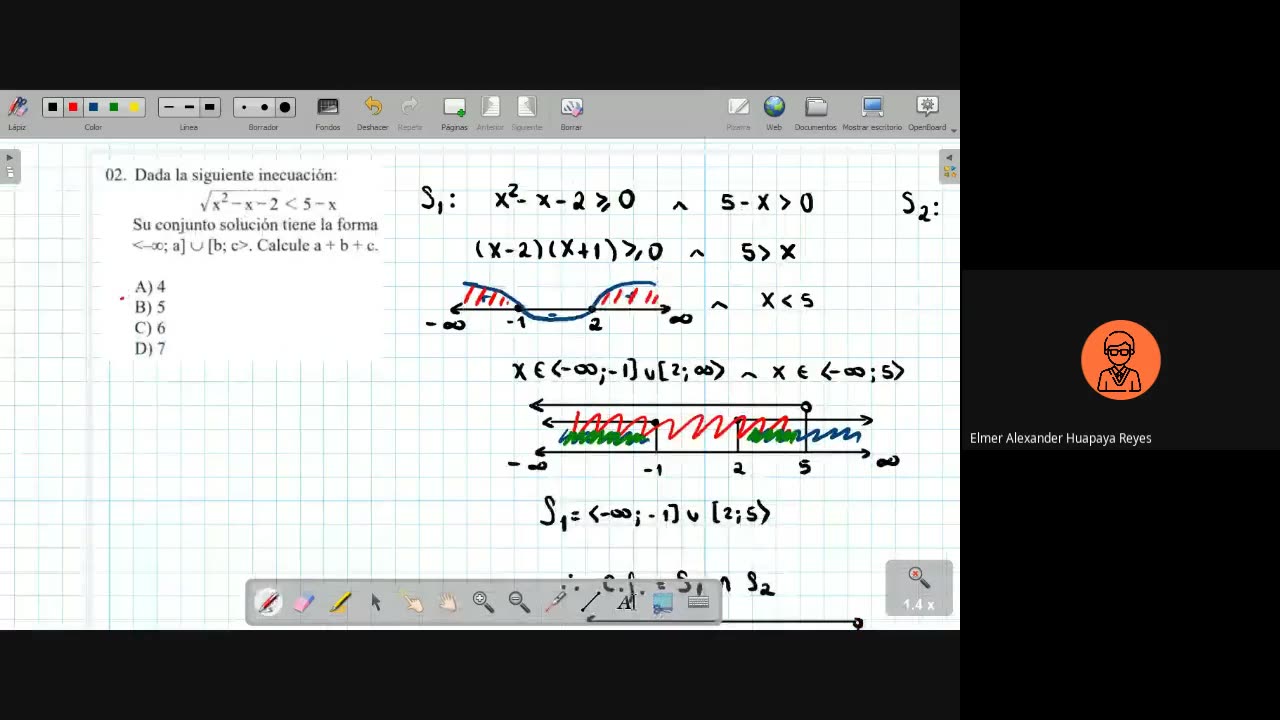 Lápiz Color Línea Borrador Fondos Deshacer Repetir Páginas Anterior Siguiente Borrar Pizarra Web Documentos Mostrar escritorio OpenBoard
02. Dada la siguiente inecuación:
√x²−x−2 < 5−x
Su conjunto solución tiene la forma
<−∞; a] ∪ [b; c>. Calcule a + b + c.
A) 4
B) 5
C) 6
D) 7
S₁: x²-x-2 ≥ 0 ∧ 5-x > 0
S₂:
(x-2)(x+1) ≥ 0 ∧ 5 > x
+ - +
-∞ -1 2 ∞ ∧ x < 5
x ∈ <-∞;-1] ∪ [2;∞> ∧ x ∈ <-∞;5>
-∞ -1 2 5 ∞
S₁ = <-∞;-1] ∪ [2;5>
∴ C.S. = S₁ ∩ S₂
1.4 x
Elmer Alexander Huapaya Reyes